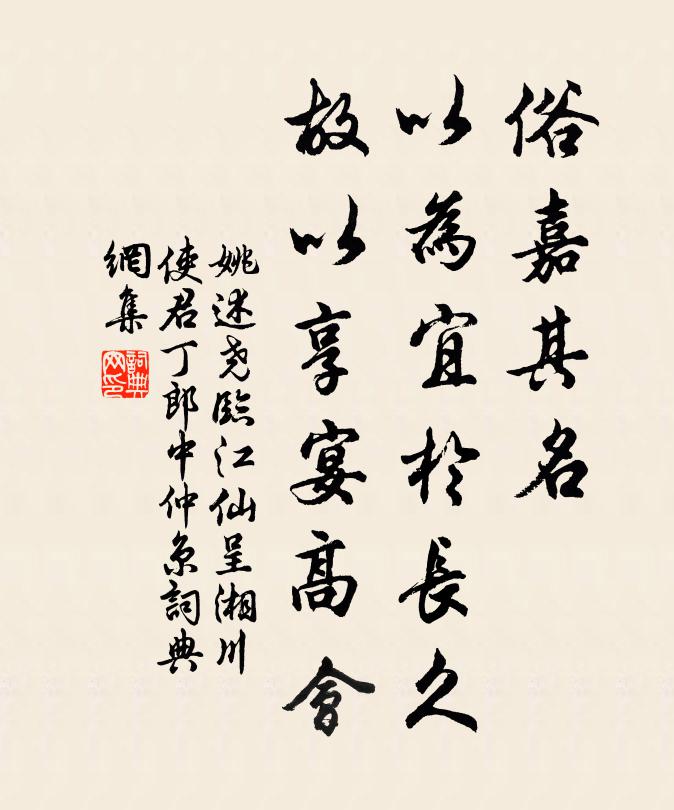 俗嘉其名
以為宜於長久
故以享宴高會
姚述堯臨江仙呈湘川
使君丁郎中仲京詞典
網集
詞典網印